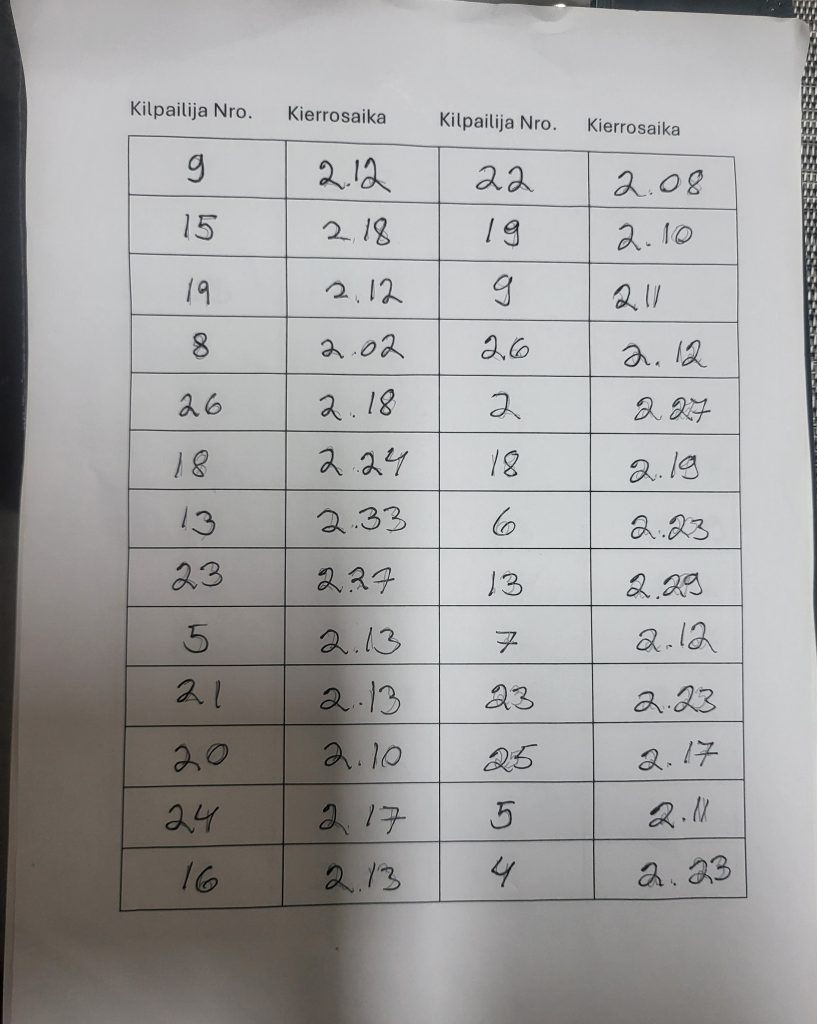 Kilpailija Nro. Kierrosaika Kilpailija Nro. Kierrosaika
9 2.12 22 2.08
15 2.18 19 2.10
19 2.12 9 2.11
8 2.02 26 2.12
26 2.18 2 2.27
18 2.24 18 2.19
13 2.33 6 2.23
23 2.27 13 2.29
5 2.13 7 2.12
21 2.13 23 2.23
20 2.10 25 2.17
24 2.17 5 2.11
16 2.13 4 2.23